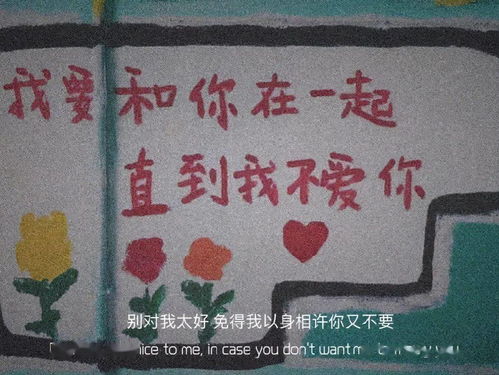 我要和你在一起
直到我不爱你
别对我太好 免得我以身相许你又不要
nice to me, in case you don't want